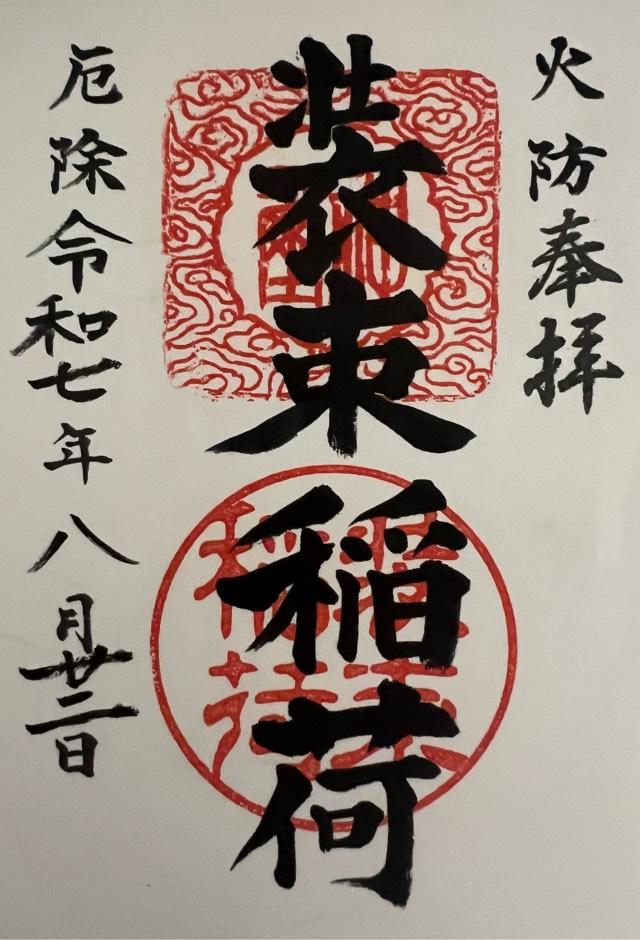 火防奉拝
装束稲荷
厄除令和七年八月廿二日